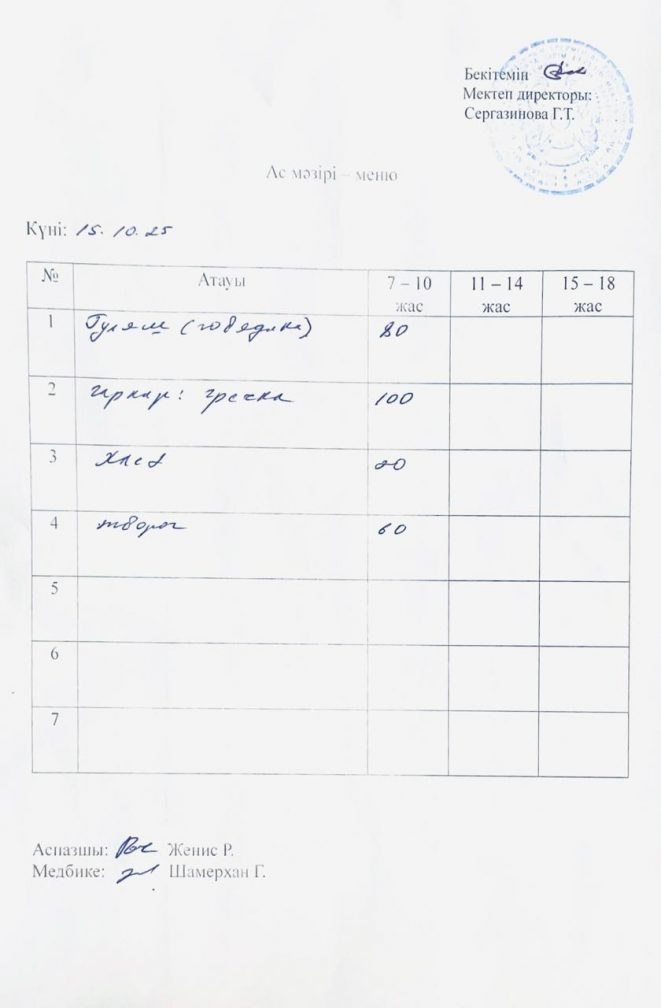 Бекітемін
Мектеп директоры:
Сергазинова Г.Т.
Ас мәзірі – меню
Күні: 15.10.25
№ Атауы 7 – 10 жас 11 – 14 жас 15 – 18 жас
1 Гуляш (говядина) 80
2 гарнир: гречка 100
3 хлеб 20
4 творог 60
5
6
7
Аспазшы: Женис Р.
Медбике: Шамерхан Г.